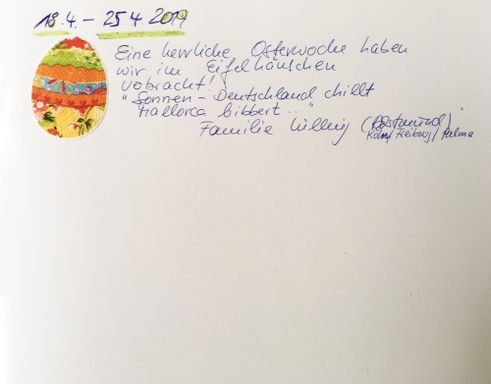 18.4. - 25.4.2019
Eine herrliche Osterwoche haben
wir im Eifelhäuschen
vobracht!
"Sonnen-Deutschland chillt
Mallorca bibbert..."
Familie (Dortmund)
Köln/Freiburg/Palma